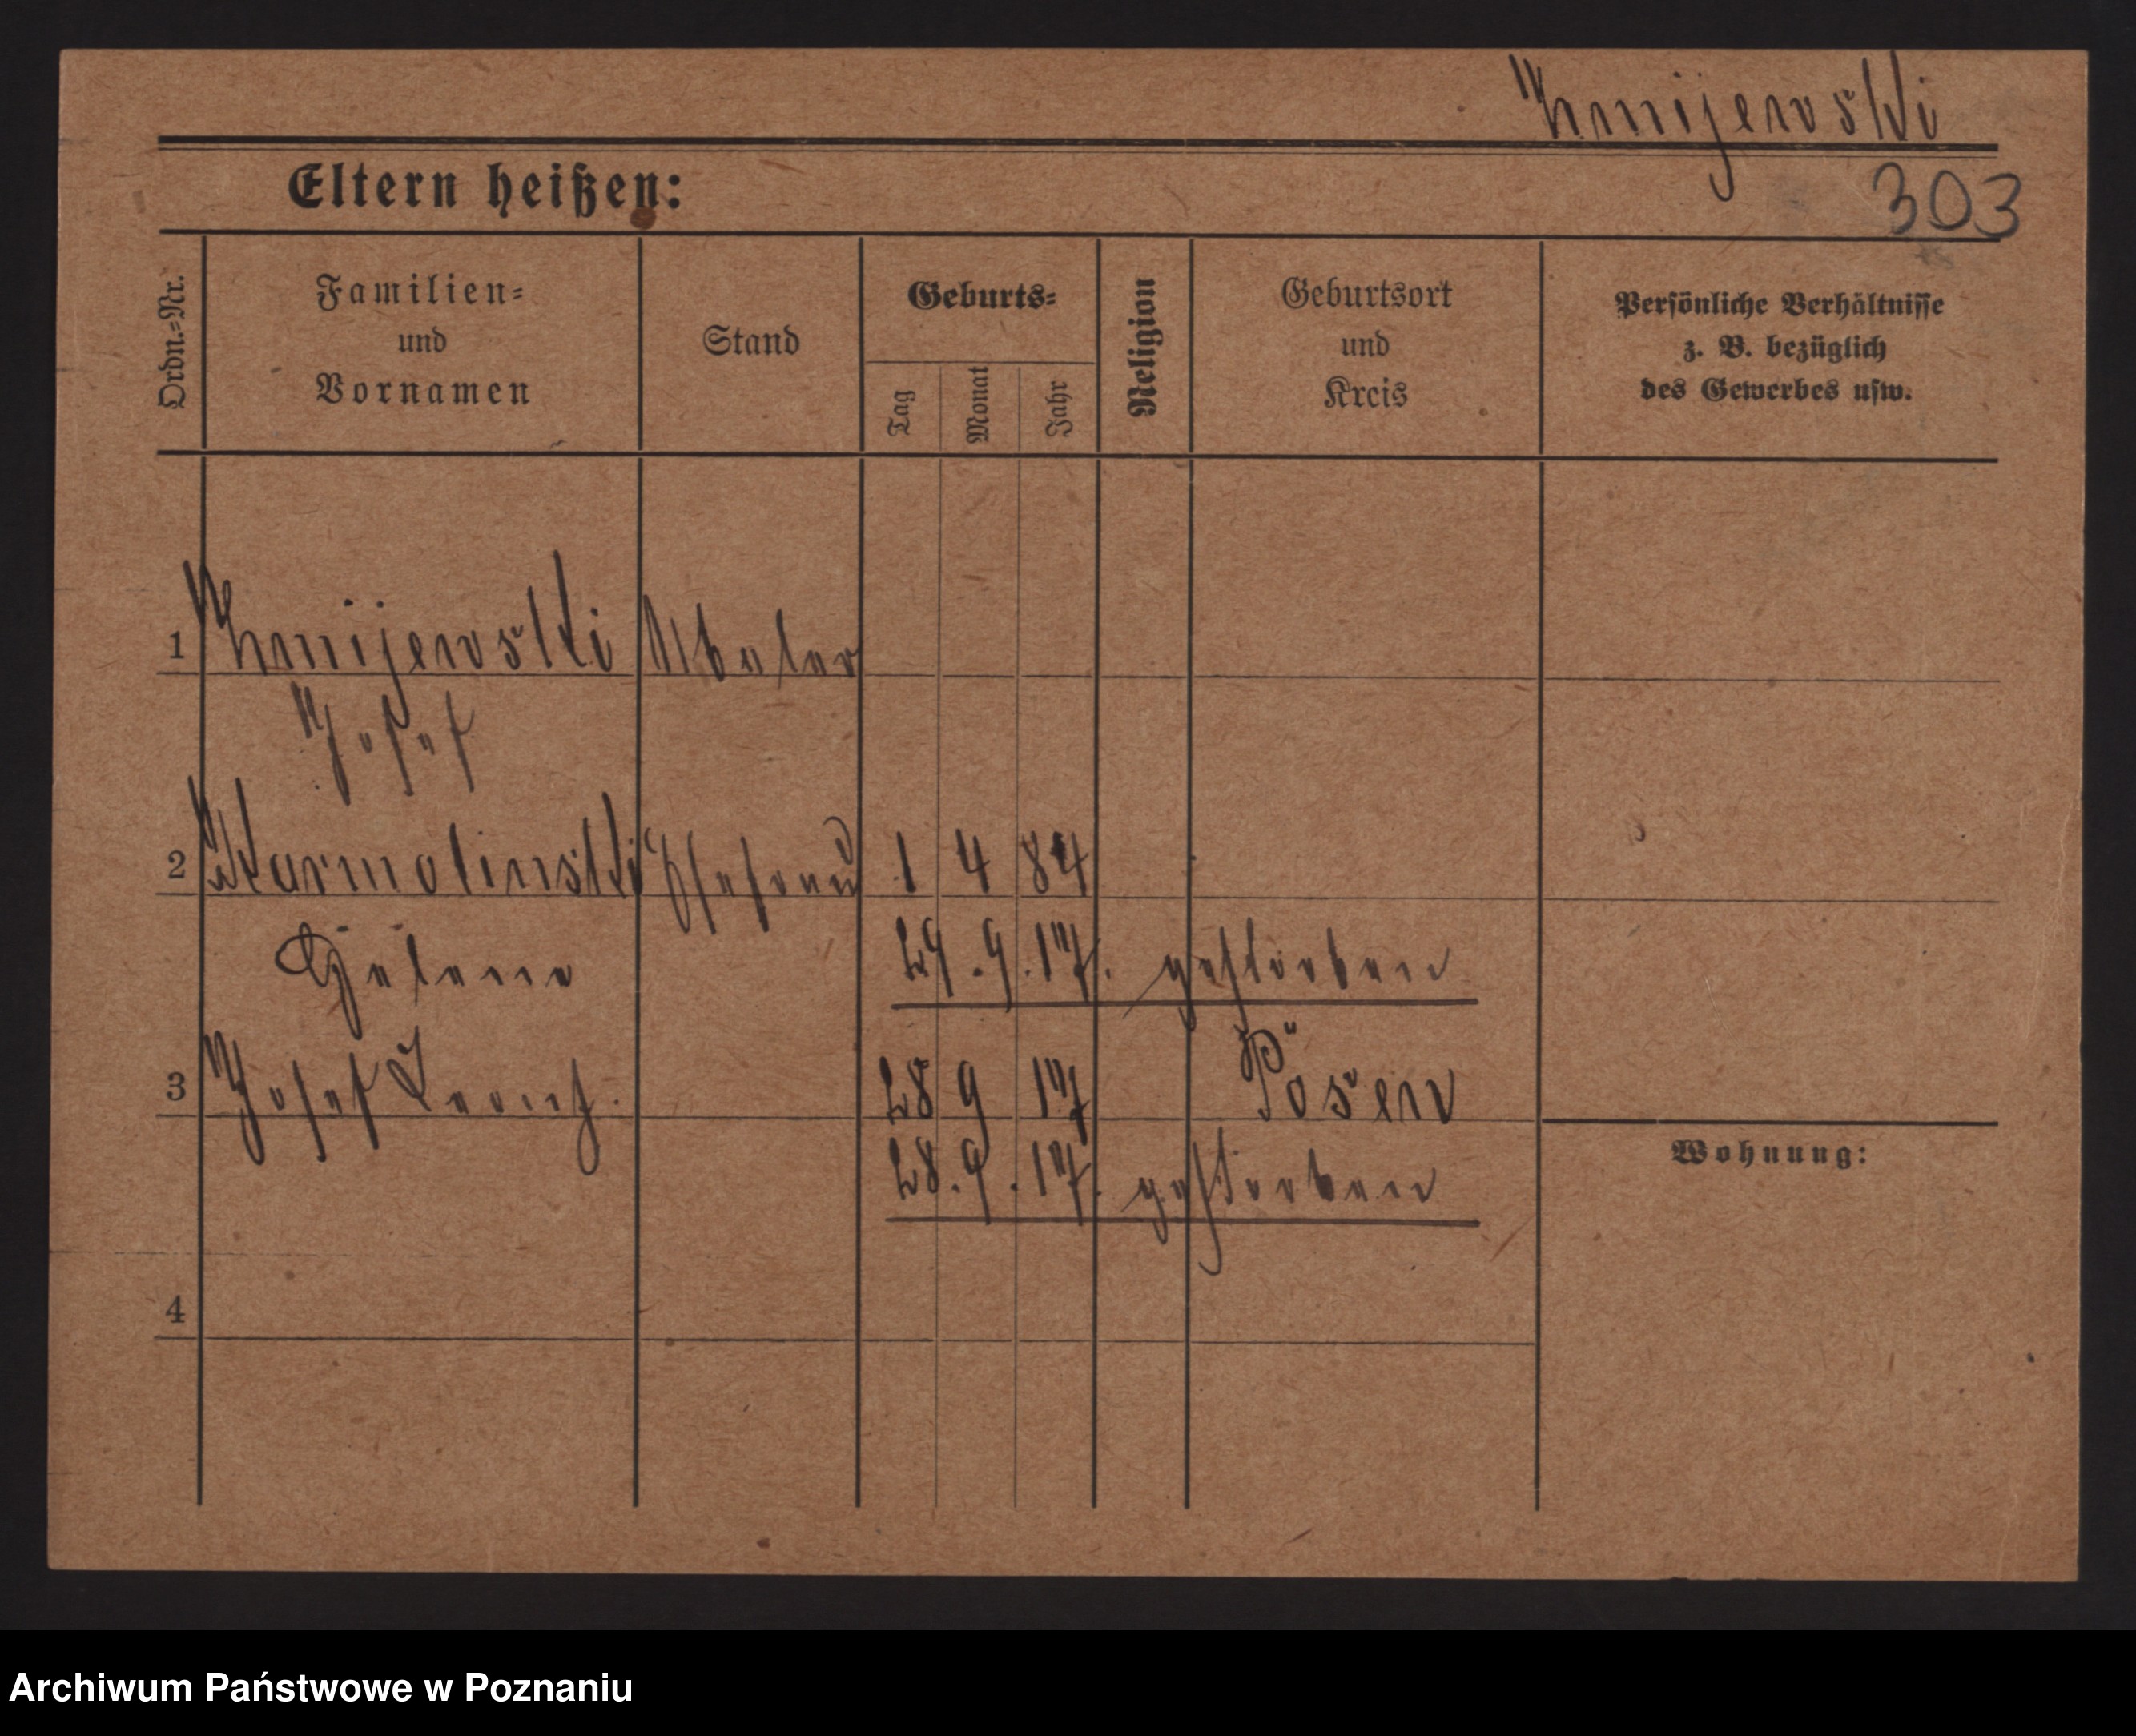 Żmijewski
303
Eltern heißen:
Ordn.=Nr.
Familien=
und
Vornamen
Stand
Geburts=
Tag
Monat
Jahr
Religion
Geburtsort
und
Kreis
Persönliche Verhältnisse
z. B. bezüglich
des Gewerbes usw.
1 Żmijewski Maler
Josef
2 Karmolinski Ehefrau 1 4 84
Helene 29.9.17. gestorben
3 Josef Franz. 28 9 17 Posen
28.9.17. gestorben
Wohnung:
4
Archiwum Państwowe w Poznaniu